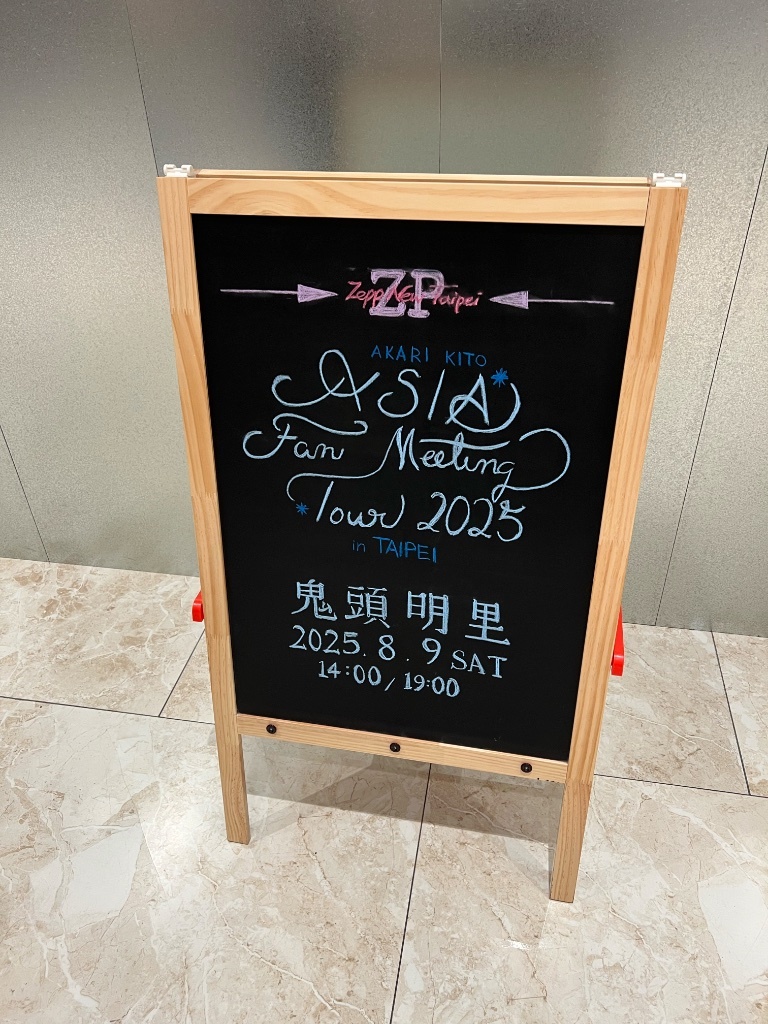 ZP
Zepp New Taipei
AKARI KITO
ASIA
Fan Meeting
Tour 2025
in TAIPEI
鬼頭明里
2025.8.9 SAT
14:00/19:00